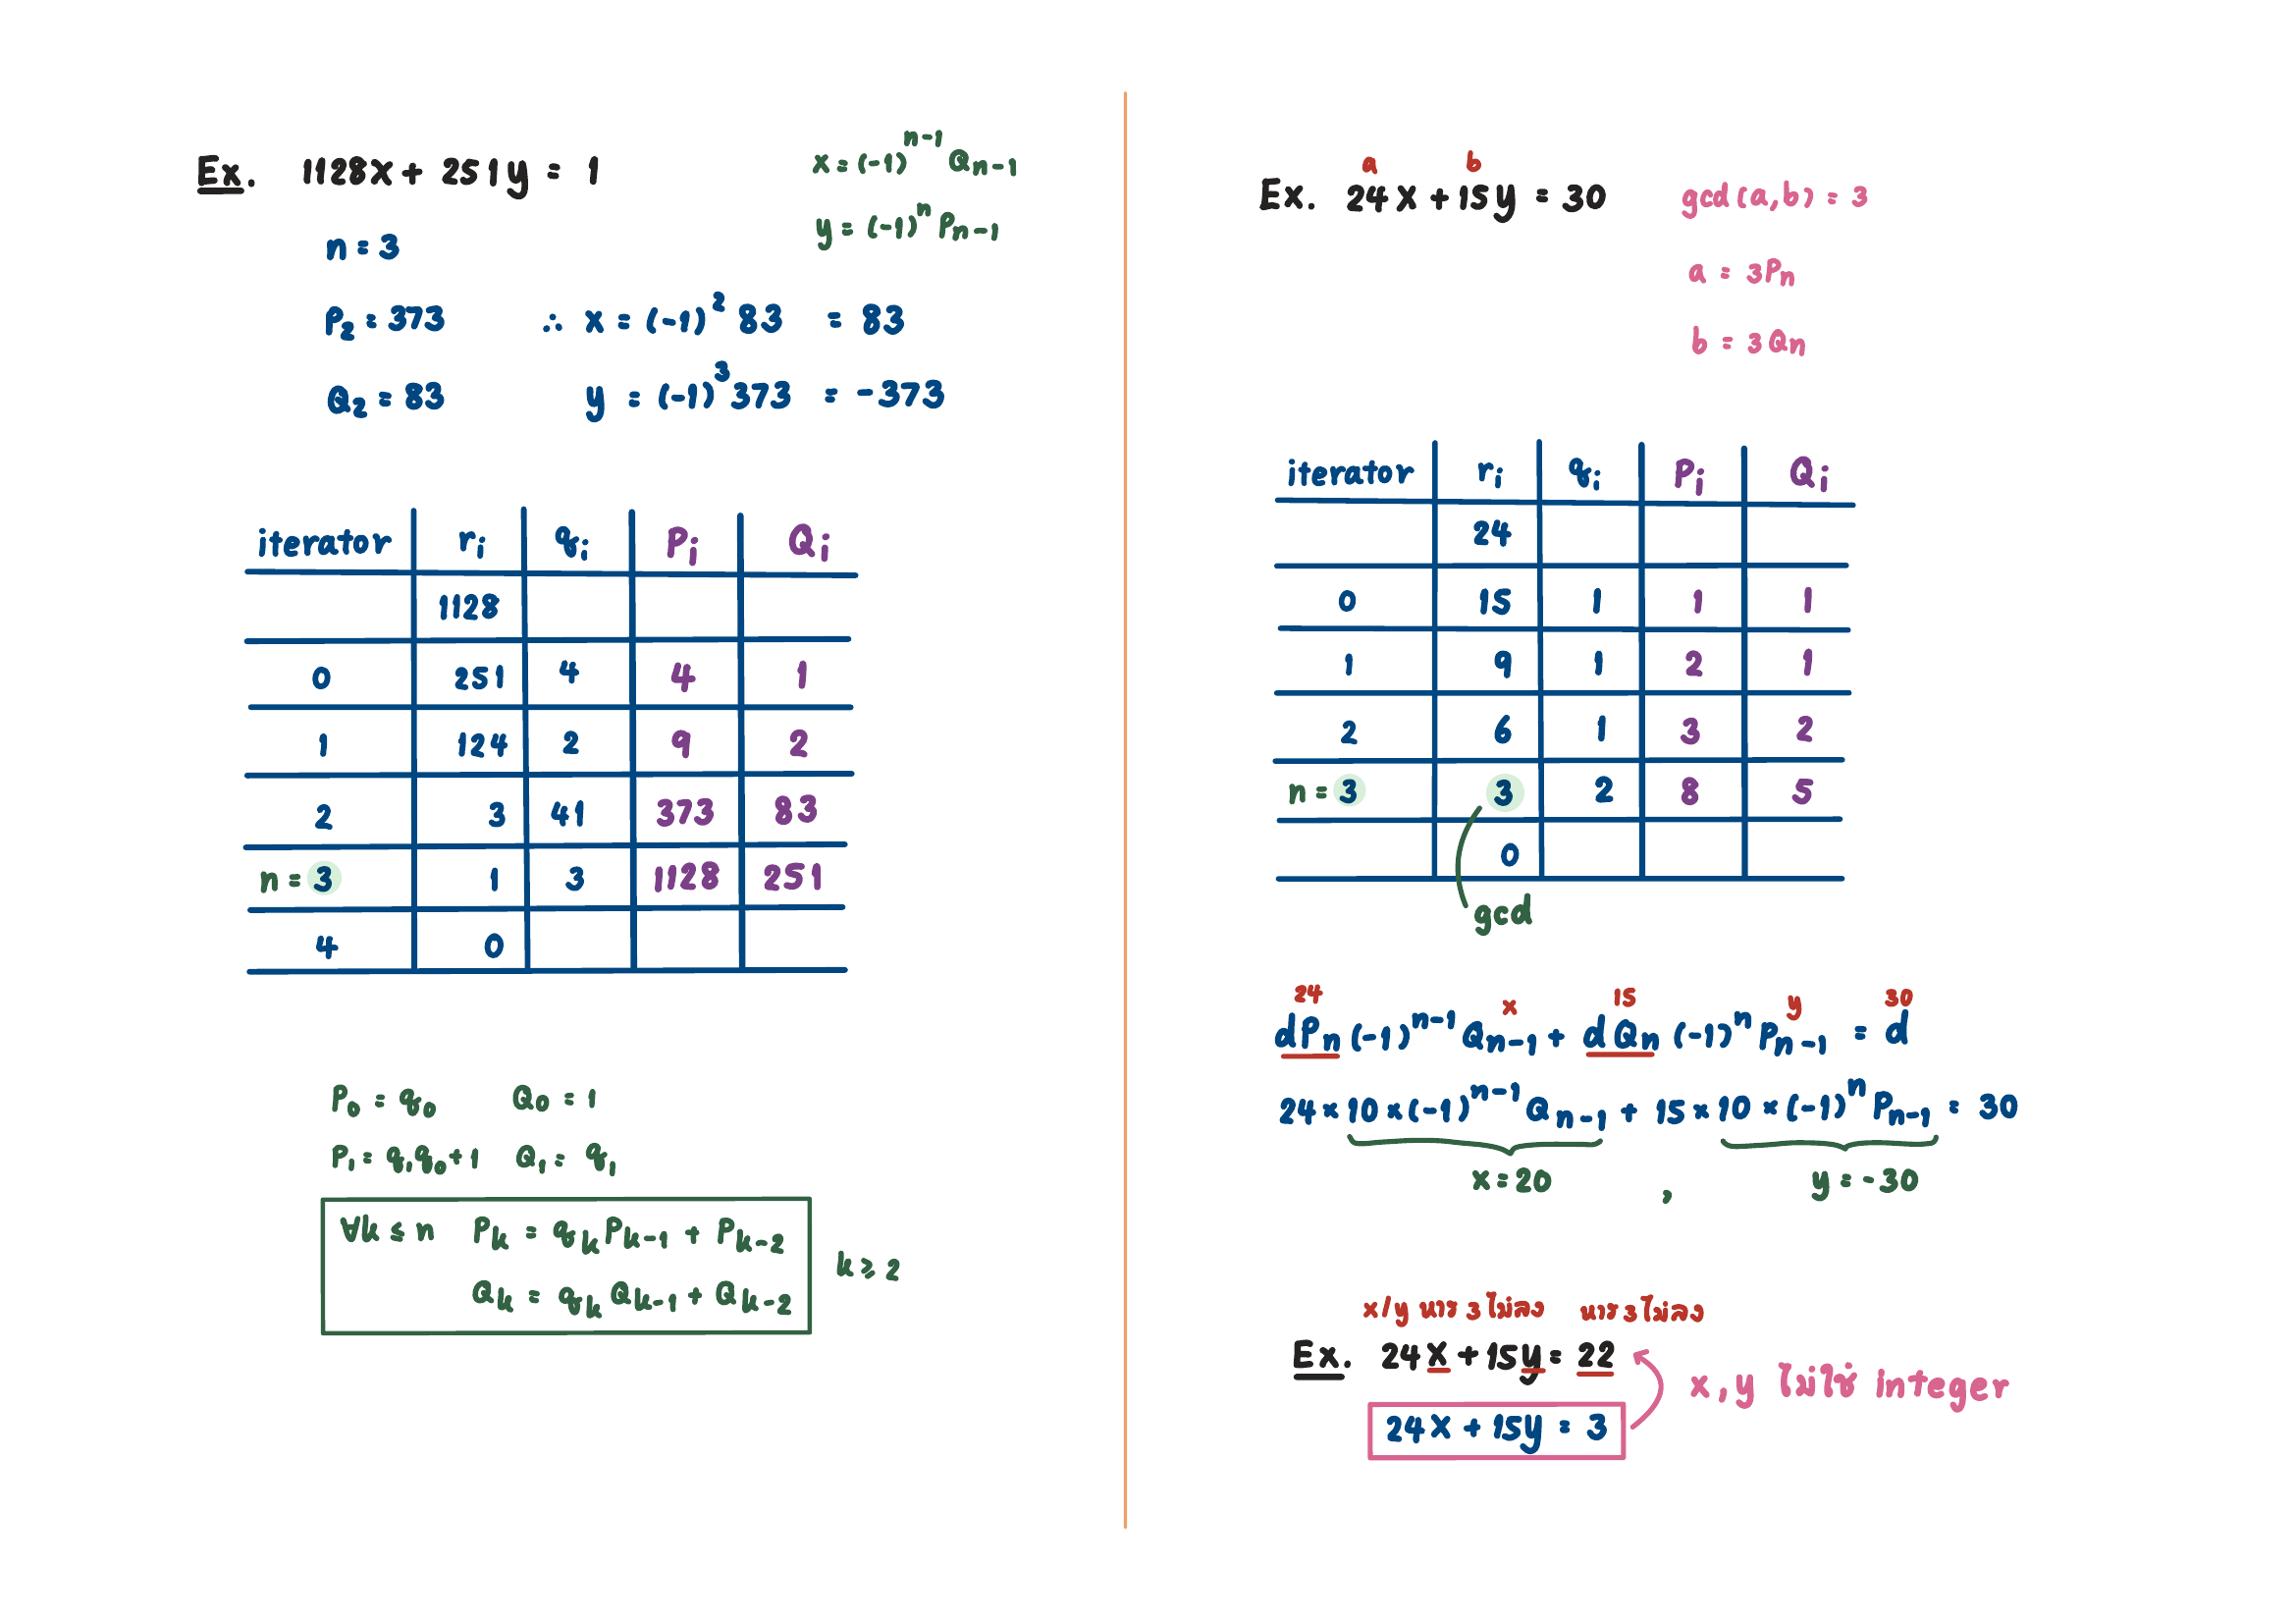 Ex. 1128x + 251y = 1
x = (-1)^{n-1} Q_{n-1}
y = (-1)^n P_{n-1}
n = 3
P_2 = 373 ∴ x = (-1)^2 83 = 83
Q_2 = 83 y = (-1)^3 373 = -373
iterator r_i q_i P_i Q_i
1128
0 251 4 4 1
1 124 2 9 2
2 3 41 373 83
n = 3 1 3 1128 251
4 0
P_0 = q_0 Q_0 = 1
P_1 = q_1 q_0 + 1 Q_1 = q_1
∀k ≤ n P_k = q_k P_{k-1} + P_{k-2}
Q_k = q_k Q_{k-1} + Q_{k-2}
k ≥ 2
a b
Ex. 24x + 15y = 30 gcd(a,b) = 3
a = 3P_n
b = 3Q_n
iterator r_i q_i P_i Q_i
24
0 15 1 1 1
1 9 1 2 1
2 6 1 3 2
n = 3 3 2 8 5
0
gcd
24 x 15 y 30
dP_n (-1)^{n-1} Q_{n-1} + dQ_n (-1)^n P_{n-1} = d
24 × 10 × (-1)^{n-1} Q_{n-1} + 15 × 10 × (-1)^n P_{n-1} = 30
x = 20 , y = -30
x/y หาร 3 ไม่ลง หาร 3 ไม่ลง
Ex. 24x + 15y = 22
x, y ไม่ใช่ integer
24x + 15y = 3